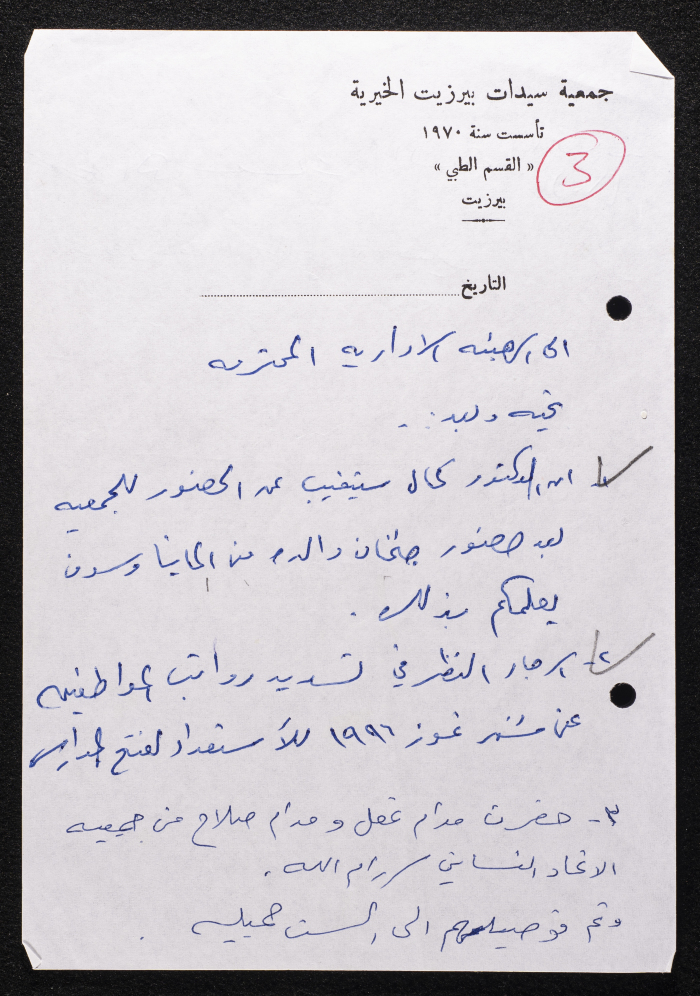 جمعية سيدات بيرزيت الخيرية
تأسست سنة ١٩٧٠
« القسم الطبي »
3
بيرزيت
التاريخ
الى الهيئه الاداريه المحترمه
تحيه وبعد..
١- ان الدكتور كمال سيتغيب عن الحضور للجمعيه
بعد حضور جثمان والده من المانيا وسوف
يعلمكم بذلك.
٢- الرجاء النظر في تسديد رواتب الموظفين
عن شهر تموز ١٩٩٦ للأستعداد لفتح المدارس
٣- حضرت مدام عقل و مدام صلاح من جمعيه
الاتحاد النسائي رام الله.
وتم توصيلهم الى الست جميله.